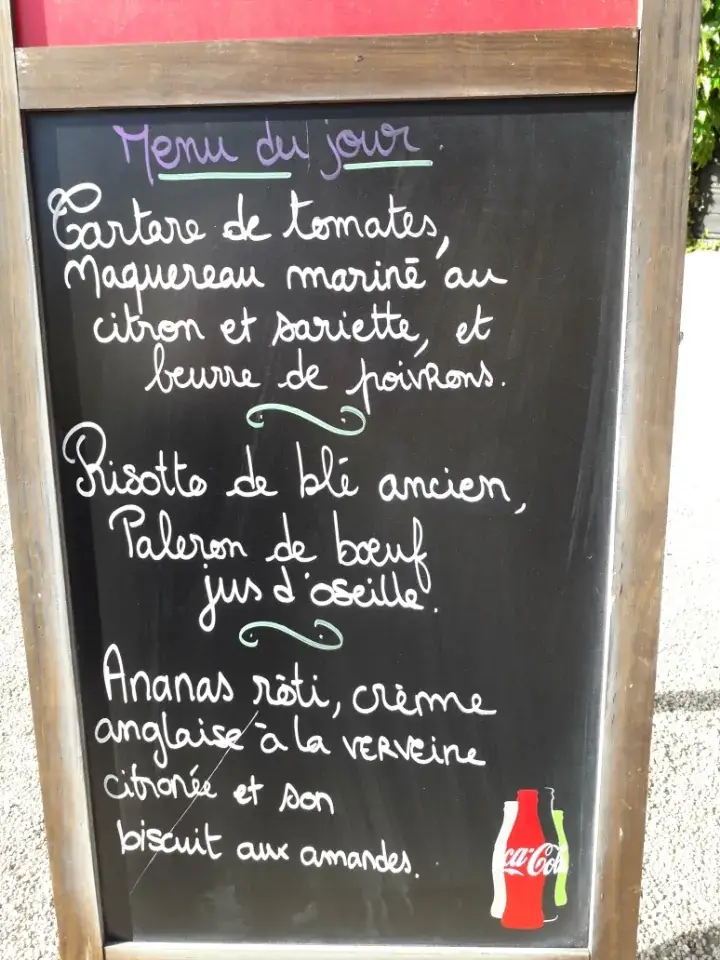 Menu du jour.
Tartare de tomates,
Maquereau mariné au
citron et sariette, et
beurre de poivrons.
Risotto de blé ancien,
Paleron de bœuf
jus d'oseille.
Ananas rôti, crème
anglaise à la verveine
citronée et son
biscuit aux amandes.
ca-Cola